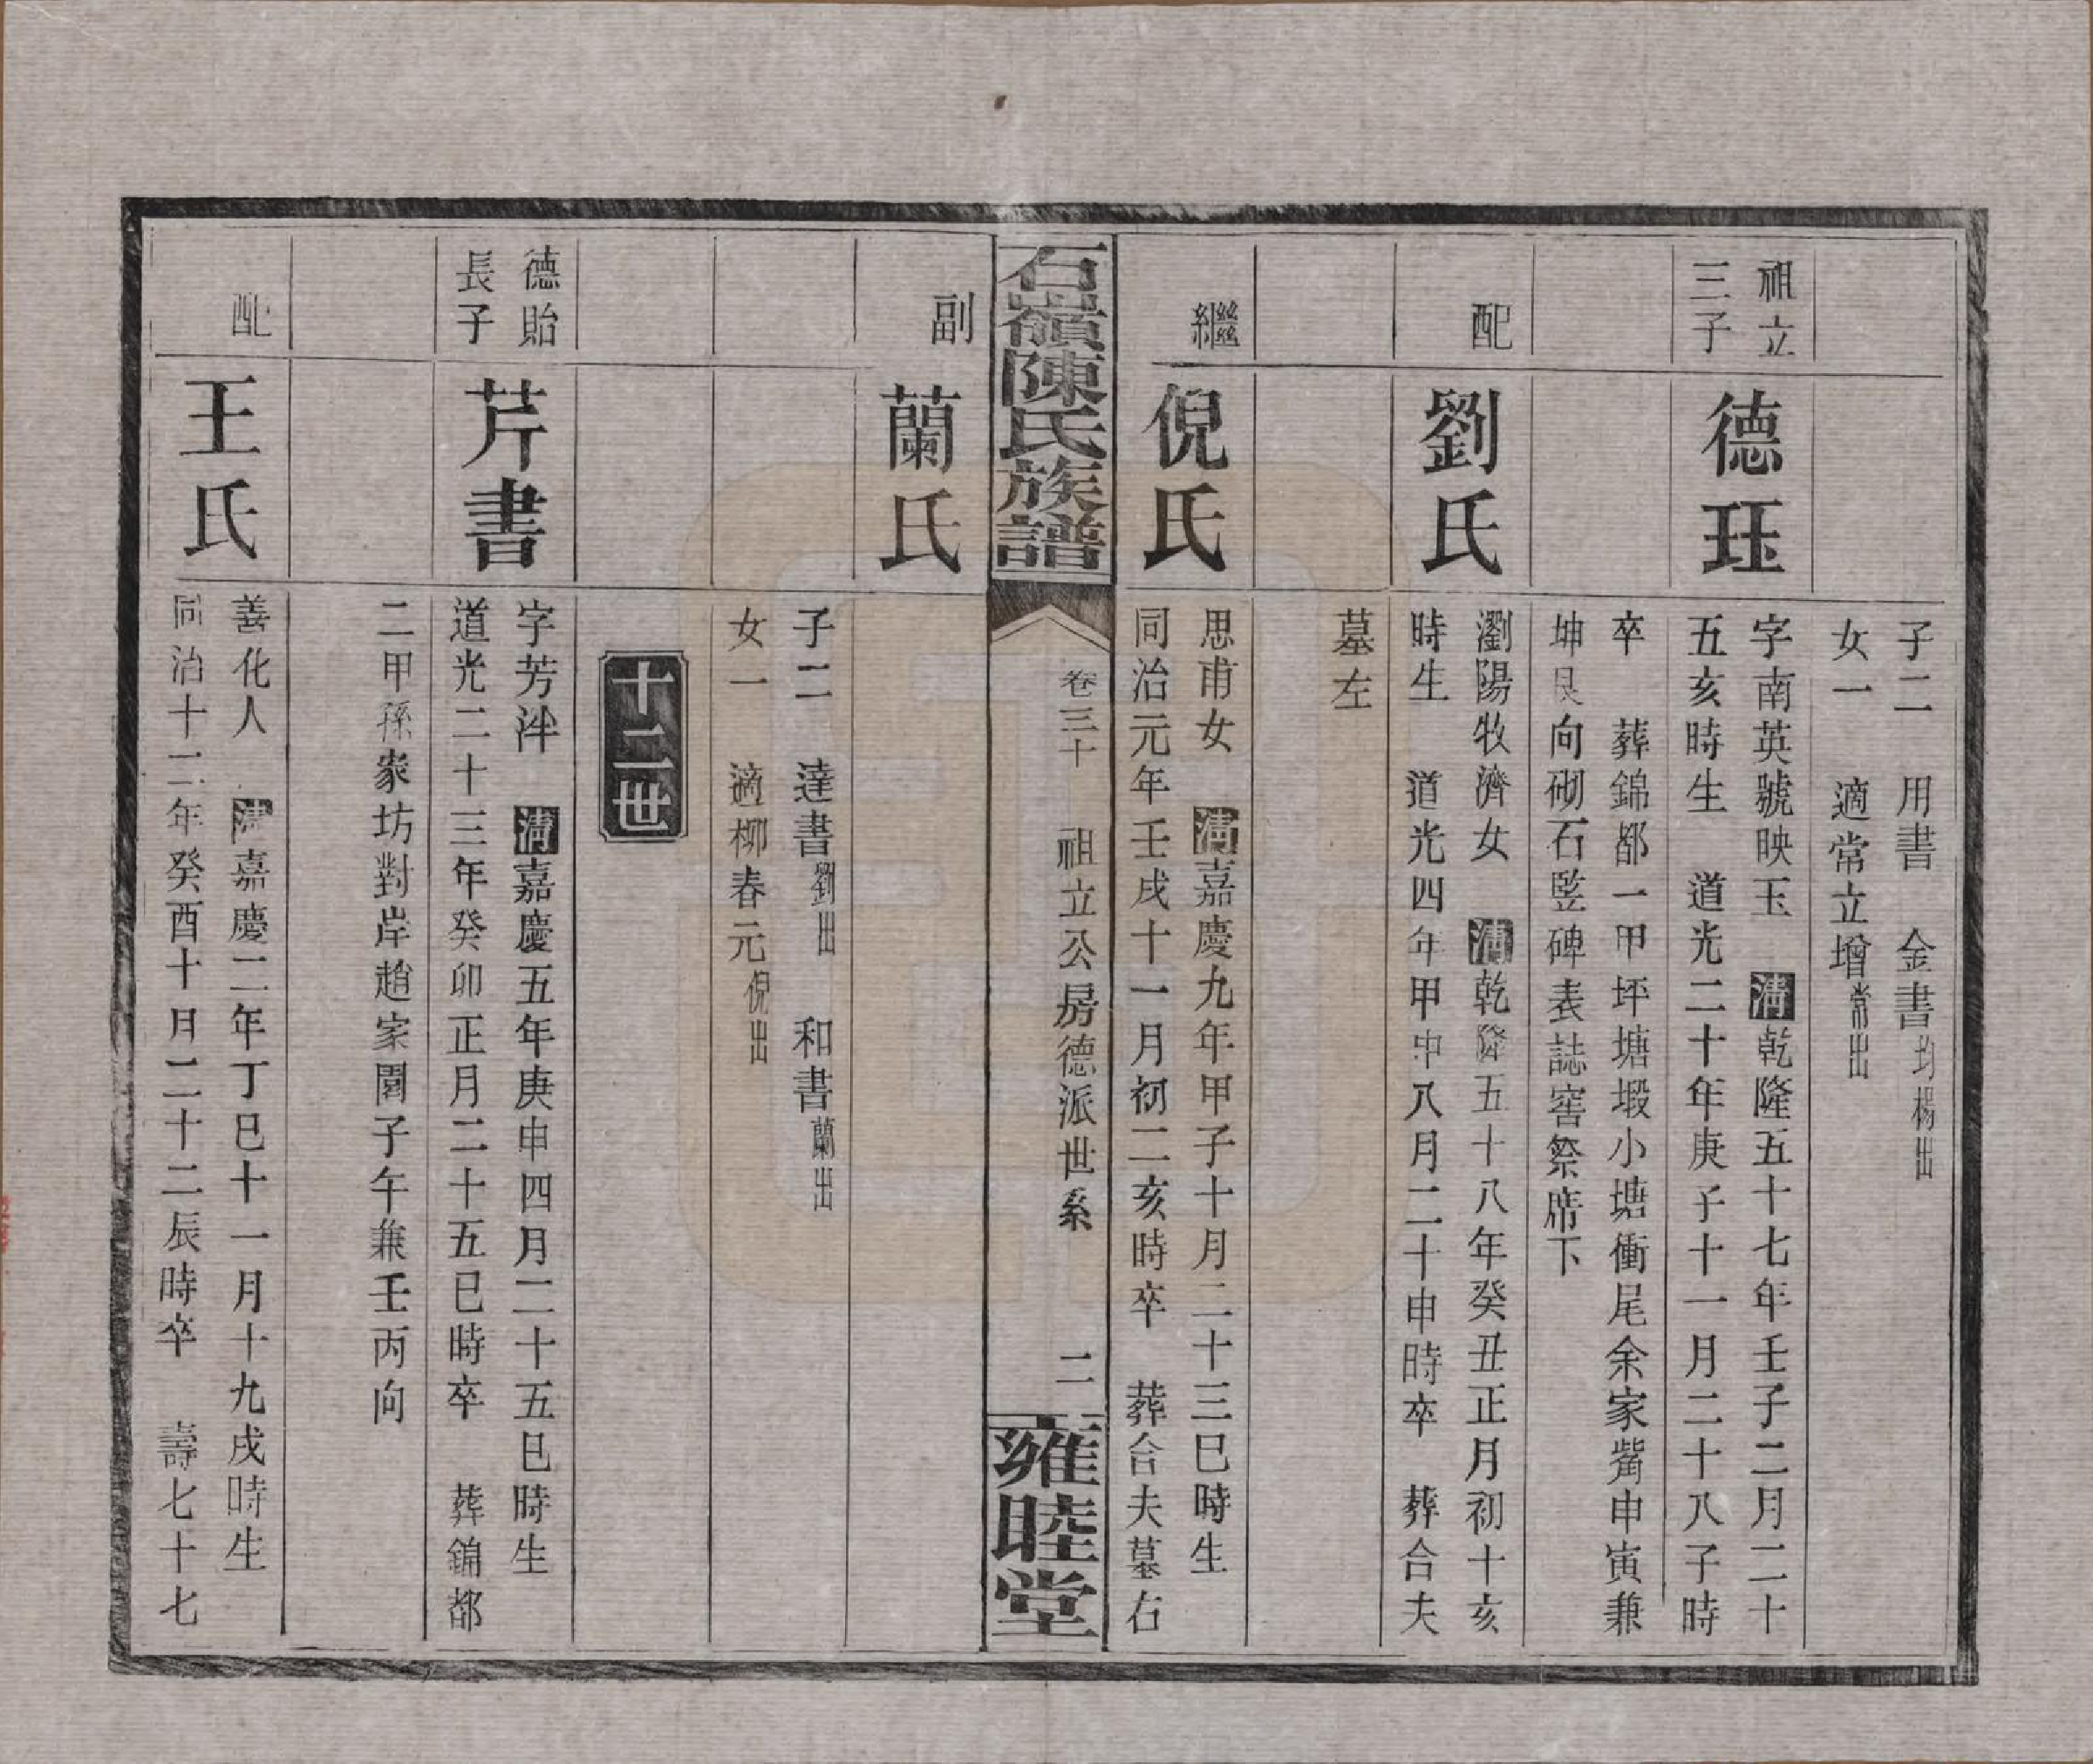 子二　用書　金書均楊出
女一　適常立增常出
祖立
三子
德珏
字南英號映玉　清乾隆五十七年壬子二月二十
五亥時生　道光二十年庚子十一月二十八子時
卒　葬錦都一甲坪塘塅小塘衝尾余家嵴申寅兼
坤艮向砌石竪碑表誌窖祭席下
配
劉氏
瀏陽牧濟女　清乾隆五十八年癸丑正月初十亥
時生　道光四年甲申八月二十申時卒　葬合夫
墓左
繼
倪氏
思甫女　清嘉慶九年甲子十月二十三巳時生
同治元年壬戌十一月初二亥時卒　葬合夫墓右
石嶺陳氏族譜
卷三十　祖立公房德派世系
二
雍睦堂
副
蘭氏
子二　達書劉出　和書蘭出
女一　適柳春元倪出
十二世
德貽
長子
芹書
字芳泮　清嘉慶五年庚申四月二十五巳時生
道光二十三年癸卯正月二十五巳時卒　葬錦都
二甲孫家坊對岸趙家園子午兼壬丙向
配
王氏
善化人　清嘉慶二年丁巳十一月十九戌時生
同治十二年癸酉十月二十二辰時卒　壽七十七